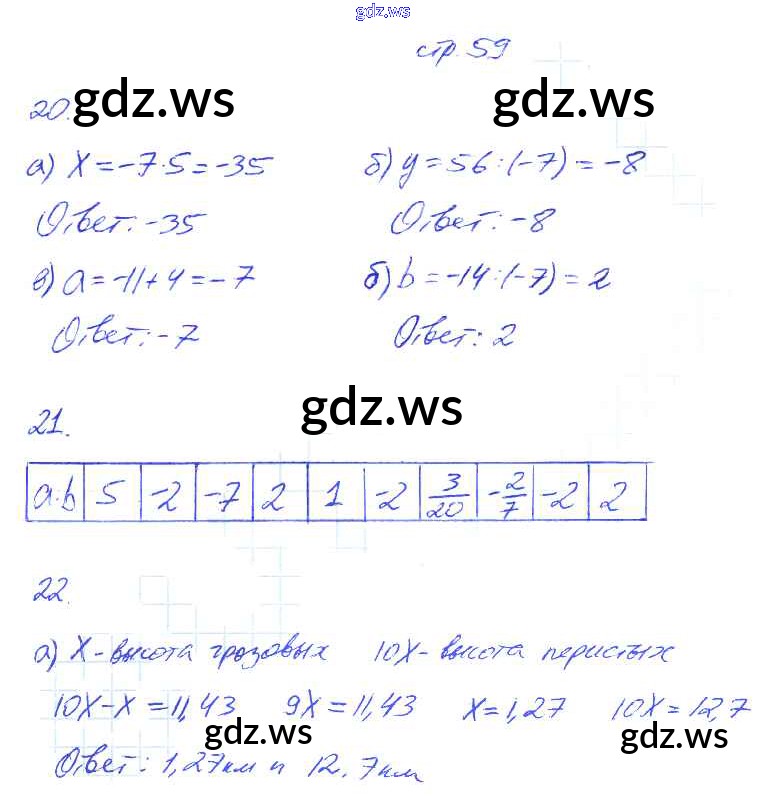 gdz.ws
стр. 59
20. gdz.ws gdz.ws
а) X = -7·5 = -35 б) y = 56:(-7) = -8
Ответ: -35 Ответ: -8
в) a = -11+4 = -7 б) b = -14:(-7) = 2
Ответ: -7 Ответ: 2
21. gdz.ws
a·b 5 -2 -7 2 1 -2 3/20 -2/7 -2 2
22.
а) X - высота грозовых 10X - высота перистых
10X-X = 11,43 9X = 11,43 X = 1,27 10X = 12,7
gdz.ws gdz.ws
Ответ: 1,27км и 12,7км